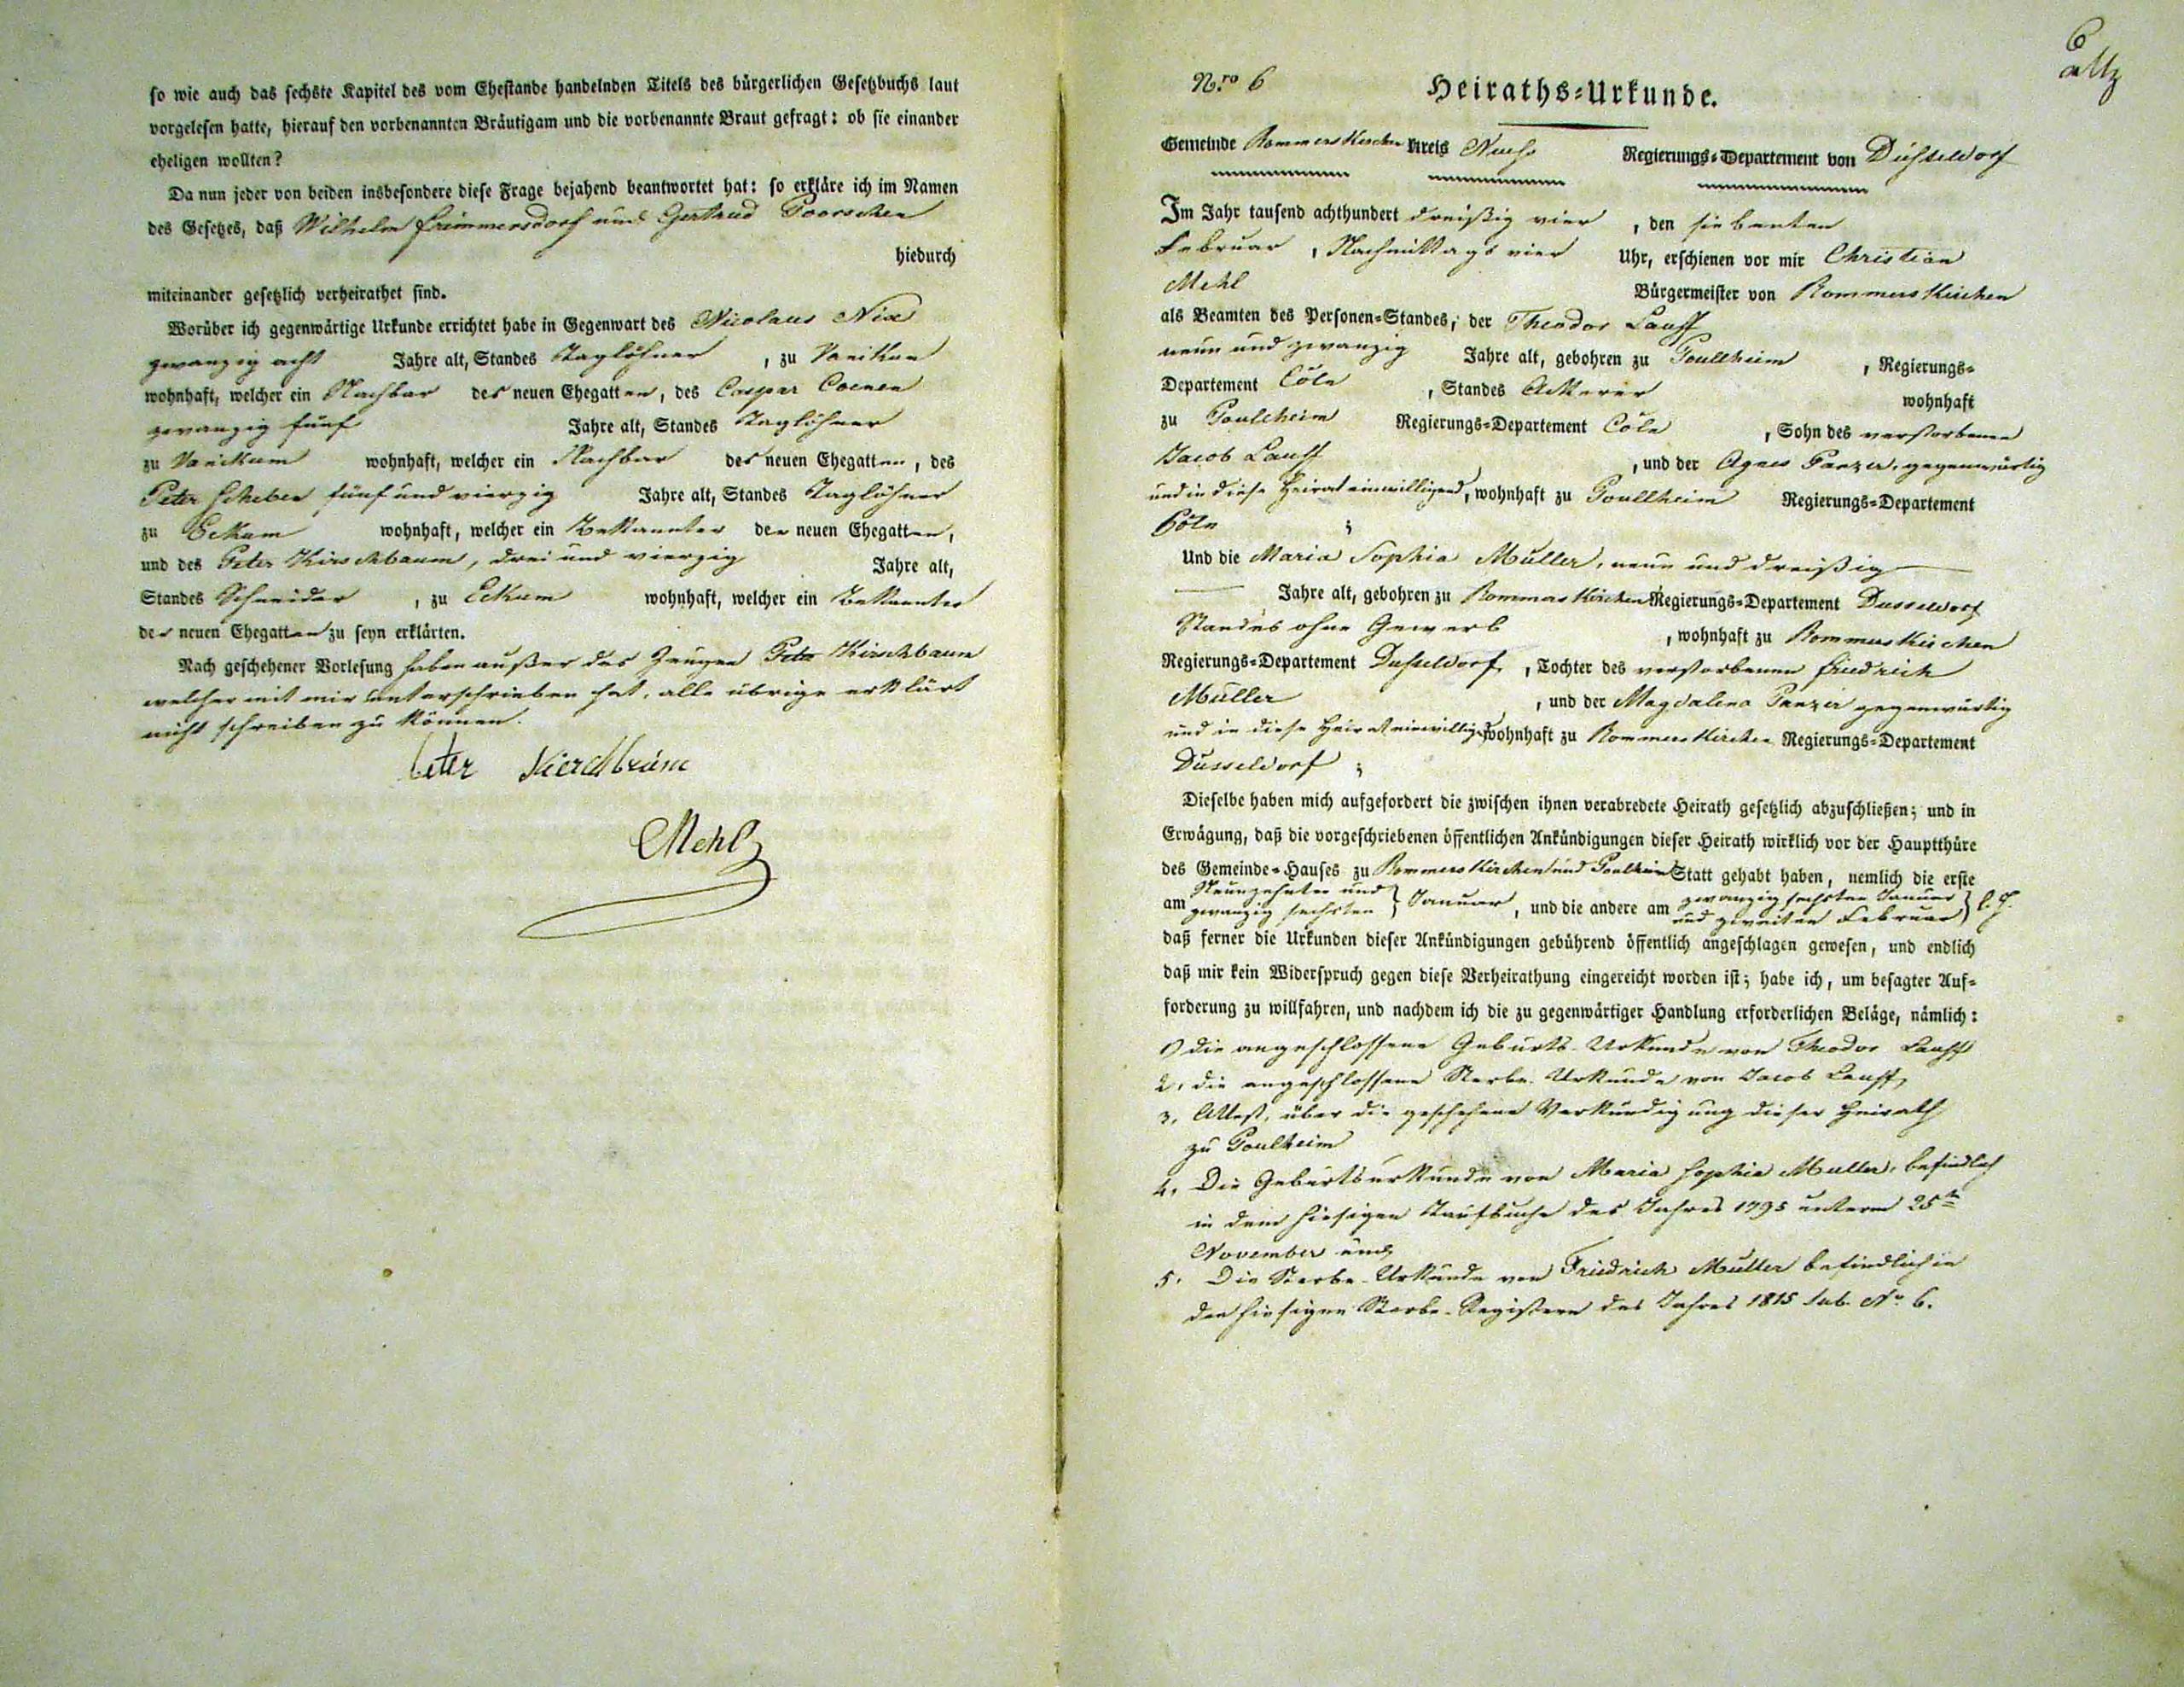 so wie auch das sechste Kapitel des vom Ehestande handelnden Titels des bürgerlichen Gesetzbuchs laut
vorgelesen hatte, hierauf den vorbenannten Bräutigam und die vorbenannte Braut gefragt: ob sie einander
eheligen wollten?
Da nun jeder von beiden insbesondere diese Frage bejahend beantwortet hat: so erkläre ich im Namen
des Gesetzes, daß Wilhelm Frimmersdorf und Gertrud Poorschen
hiedurch
miteinander gesetzlich verheirathet sind.
Worüber ich gegenwärtige Urkunde errichtet habe in Gegenwart des Nicolaus Nix
zwanzig acht Jahre alt, Standes Taglöhner, zu Vanikum
wohnhaft, welcher ein Nachbar der neuen Ehegatten, des Caspar Coenen
zwanzig fünf Jahre alt, Standes Taglöhner
zu Vanikum wohnhaft, welcher ein Nachbar der neuen Ehegatten, des
Peter Scheben fünf und vierzig Jahre alt, Standes Taglöhner
zu Eckum wohnhaft, welcher ein Bekannter der neuen Ehegatten,
und des Peter Kirschbaum, drei und vierzig Jahre alt,
Standes Schneider, zu Eckum wohnhaft, welcher ein Bekannter
der neuen Ehegatten zu seyn erklärten.
Nach geschehener Vorlesung haben außer des Zeugen Peter Kirschbaum
welcher mit mir unterschrieben hat, alle übrige erklärt
nicht schreiben zu können.
Peter Kirschbaum
Mehl
6
Nro 6 Heiraths-Urkunde.
Gemeinde Rommerskirchen Kreis Neuss Regierungs-Departement von Düsseldorf
Im Jahr tausend achthundert dreißig vier, den siebenten
Februar, Nachmittags vier Uhr, erschienen vor mir Christian
Mehl Bürgermeister von Rommerskirchen
als Beamten des Personen-Standes, der Theodor Lauff
neun und zwanzig Jahre alt, gebohren zu Poullheim, Regierungs-
Departement Cöln, Standes Ackerer wohnhaft
zu Poulheim Regierungs-Departement Cöln, Sohn des verstorbenen
Jacob Lauff, und der Agnes Panzer, gegenwärtig
und in diese Heirat einwilligend, wohnhaft zu Poullheim Regierungs-Departement
Cöln;
Und die Maria Sophia Müller, neun und dreißig
Jahre alt, gebohren zu Rommerskirchen Regierungs-Departement Dusseldorf
Standes ohne Gewerb, wohnhaft zu Rommerskirchen
Regierungs-Departement Dusseldorf, Tochter des verstorbenen Friedrich
Müller, und der Magdalena Panzer gegenwärtig
und in diese Heirat einwilligd wohnhaft zu Rommerskirchen Regierungs-Departement
Düsseldorf;
Dieselbe haben mich aufgefordert die zwischen ihnen verabredete Heirath gesetzlich abzuschließen; und in
Erwägung, daß die vorgeschriebenen öffentlichen Ankündigungen dieser Heirath wirklich vor der Hauptthüre
des Gemeinde-Hauses zu Rommerskirchen und Poulheim Statt gehabt haben, nemlich die erste
am Neunzehnten und zwanzig sechsten } Januar, und die andere am zwanzig sechsten Januar und zweiten Februar } l. J.
daß ferner die Urkunden dieser Ankündigungen gebührend öffentlich angeschlagen gewesen, und endlich
daß mir kein Widerspruch gegen diese Verheirathung eingereicht worden ist; habe ich, um besagter Auf-
forderung zu willfahren, und nachdem ich die zu gegenwärtiger Handlung erforderlichen Beläge, nämlich:
1) die angeschlossene Geburts-Urkunde von Theodor Lauff
2, die angeschlossene Sterbe-Urkunde von Jacob Lauff,
3, Attest, über die geschehene Verkündigung dieser Heirath
zu Poulheim
4, Die Geburtsurkunde von Maria Sophia Müller, befindlich
in dem hiesigen Taufbuche des Jahres 1795 unterm 25ten
November und
5, Die Sterbe-Urkunde von Friedrich Müller befindlich in
den hiesigen Sterbe-Registern des Jahres 1815 sub. No 6.